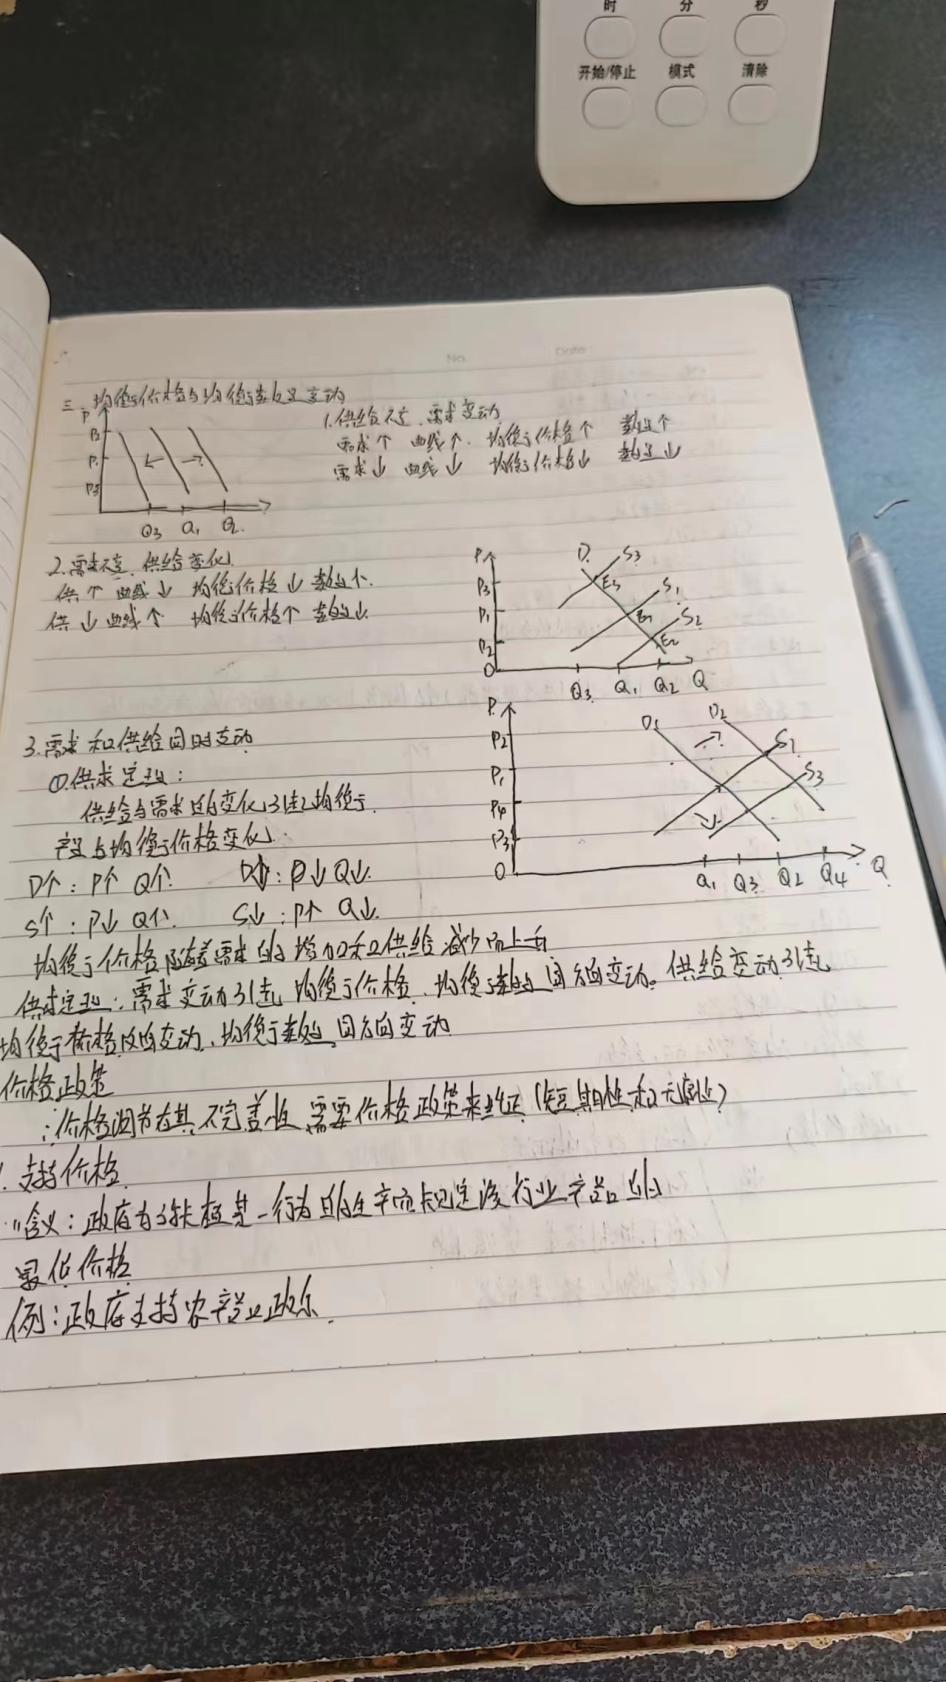 时 分 秒
开始/停止 模式 清除
No. Date
三、均衡价格与均衡数量变动
1.供给不变,需求变动
需求↑ 曲线↑. 均衡价格↑ 数量↑
需求↓ 曲线↓ 均衡价格↓ 数量↓
P
P.
Q3 Q1 Q2
2.需求不变,供给变化
供↑ 曲线↓ 均衡价格↓ 数量↑.
供↓曲线↑ 均衡价格↑ 数量↓.
P
P3
P1
P2
O
D S3
E3 S1
E1 S2
E2
Q3 Q1 Q2 Q
3.需求和供给同时变动
①供求定理:
供给与需求的变化引起均衡
产量与均衡价格变化.
D↑:P↑ Q↑. D↓:P↓Q↓.
S↑:P↓ Q↑. S↓:P↑ Q↓.
P
P2
P1
P4
P3
O
D1 D2
S1
S3
Q1 Q3 Q2 Q4 Q
均衡价格随着需求的增加和供给减少而上升
供求定理:需求变动引起均衡价格、均衡数量同方向变动。供给变动引起
均衡价格反向变动、均衡数量同方向变动
价格政策
:价格调节有其不完善性,需要价格政策来纠正(短期性和
1.支持价格
含义:政府为扶植某一行为的生产而规定该行业产品的
最低价格
例:政府支持农产